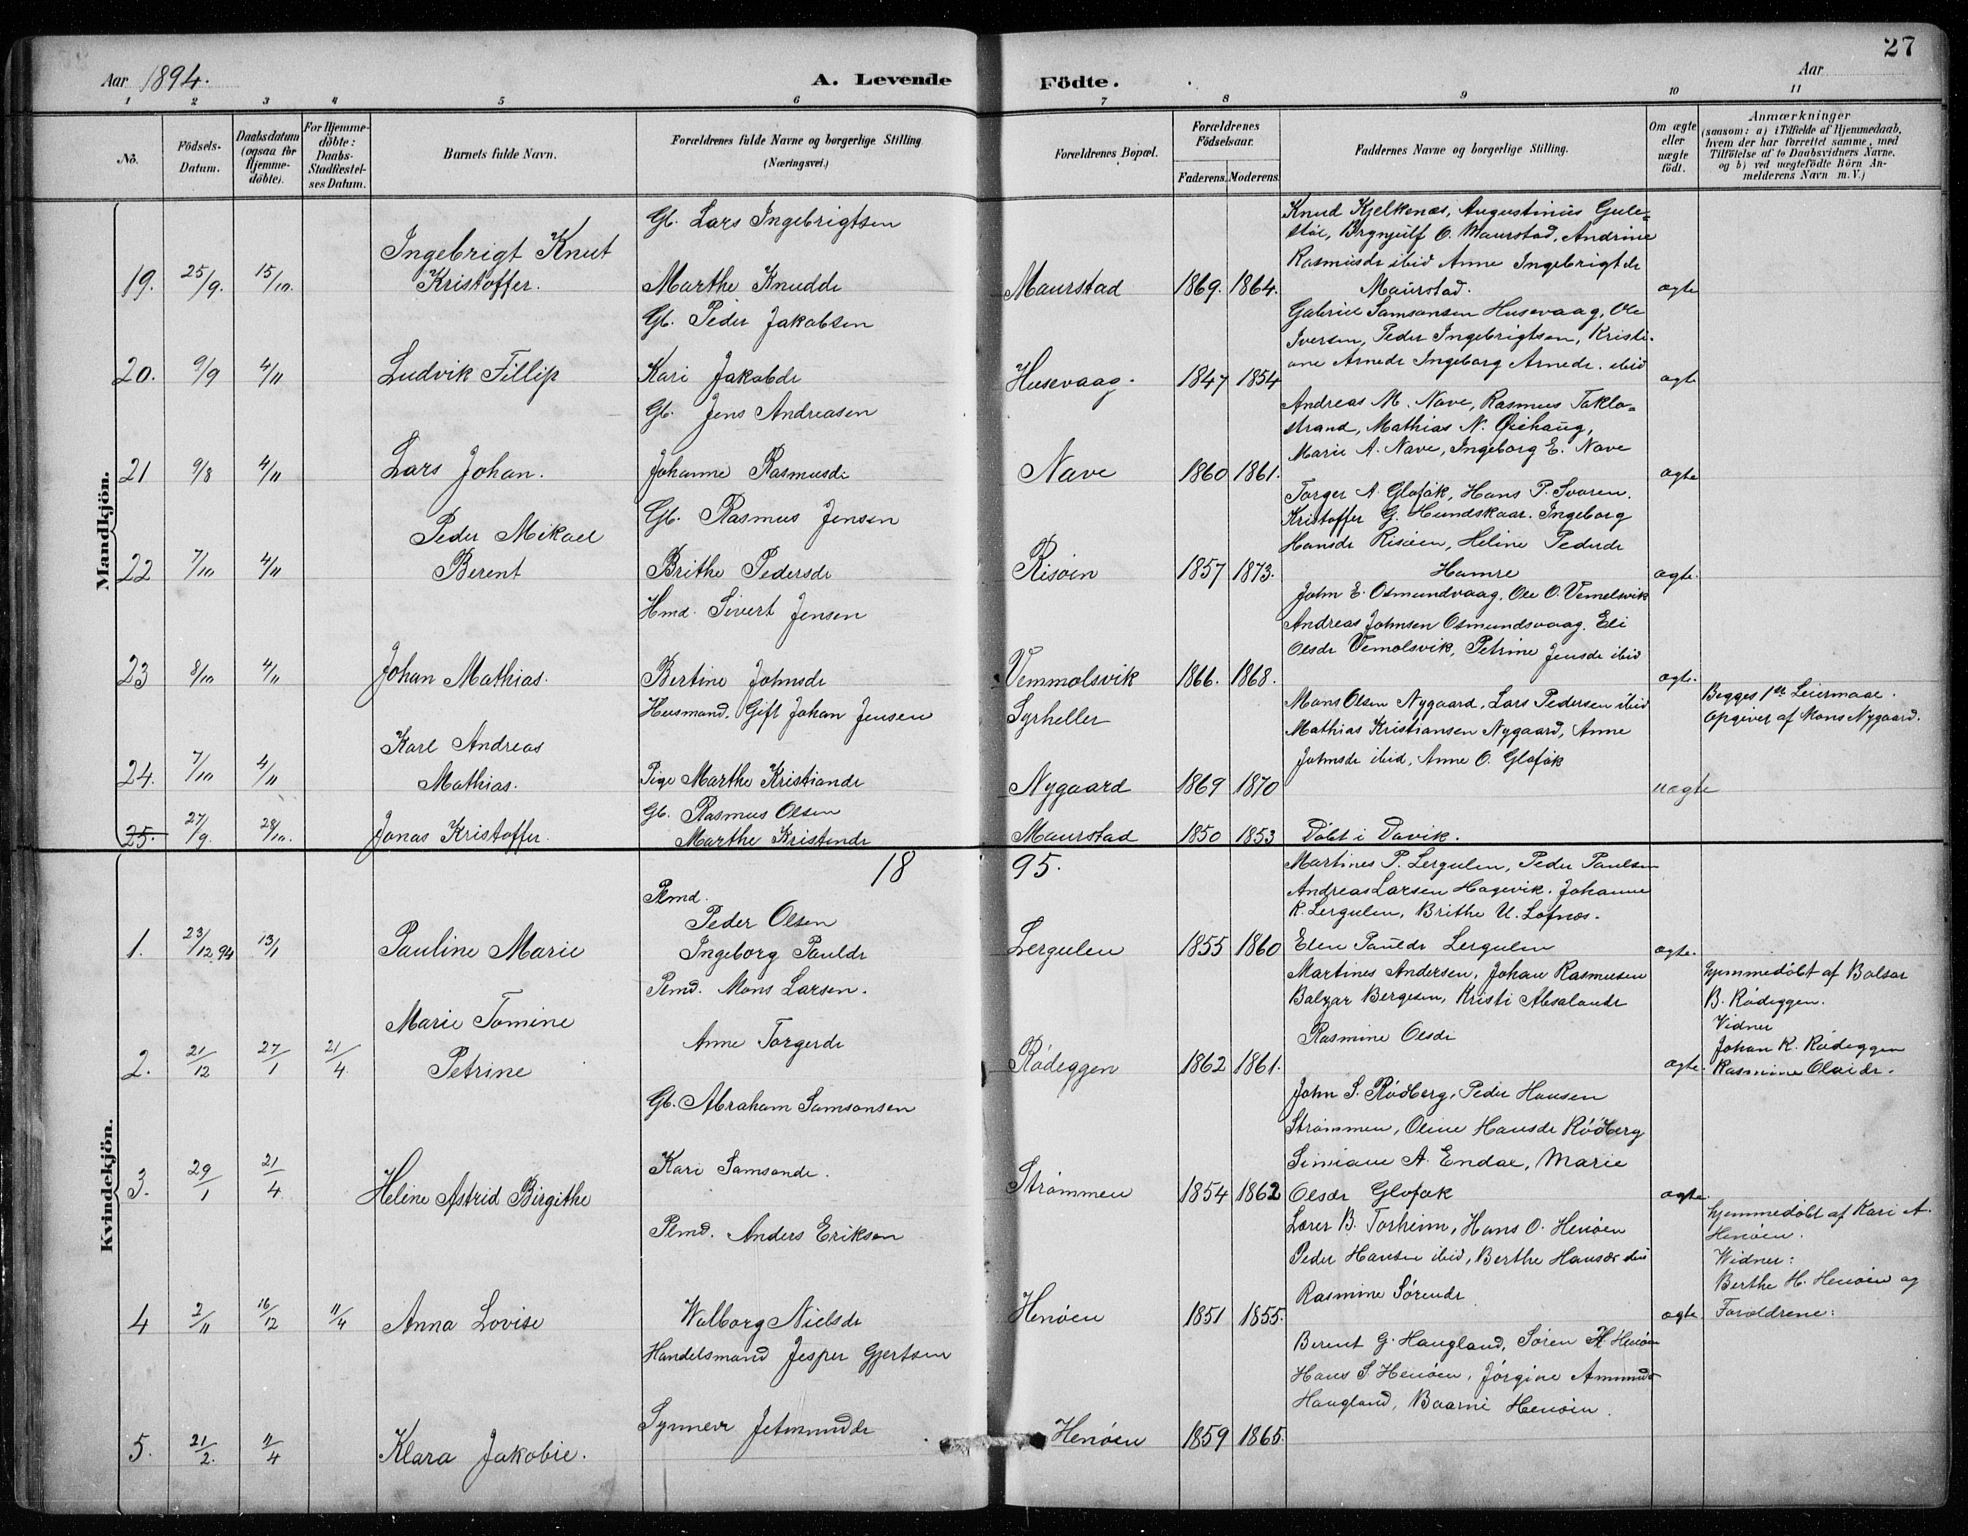 27
Aar 1894. A. Levende Födte. Aar
1 2 3 4 5 6 7 8 9 10 11
No.
Födsels-Datum.
Daabsdatum (ogsaa for Hjemme-döbte).
For Hjemme-döbte: Daabs-Stadfæstel-ses Datum.
Barnets fulde Navn.
Forældrenes fulde Navne og borgerlige Stilling (Næringsvei.)
Forældrenes Bopæl.
Forældrenes Födselsaar.
Faderens. Moderens.
Faddernes Navne og borgerlige Stilling.
Om ægte eller uægte födt.
Anmærkninger
(saasom: a) i Tilfælde af Hjemmedaab, hvem der har forrettet samme, med Tilföielse af to Daabsvidners Navne, og b) ved uægtefödte Börn An-melderens Navn m. V.)
Mandkjön.
Gb. Lars Ingebrigtsen
Knud Kjelkenæs, Augustinus Gule-
Ingebrigt Knut
støl, Brynjulf O. Maurstad, Andrine
Rasmusdr ibid Anne Ingebrigtdr
19. 25/9. 15/10. Kristoffer. Marthe Knuddr Maurstad 1869. 1864. Maurstad. ægte
Gb. Peder Jakobsen
Gabriel Samsonsen Husevaag, Ole
Iversen, Peder Ingebrigtsen, Kristi-
ane Arnedr Ingeborg Arnedr. ibid
20. 9/9 4/11 Ludvik Fillip Kari Jakobdr Husevaag. 1847 1854 ægte
Gb. Jens Andreasen
Andreas M. Nave, Rasmus Taklo-
strand, Mathias N. Øiehaug,
Marie A. Nave, Ingeborg E. Nave
21 9/8 4/11 Lars Johan. Johanne Rasmusdr Nave 1860 1861. ægte
Gb. Rasmus Jensen
Torger A. Gloføk, Hans P. Svoren.
Peder Mikael
Kristoffer G. Hundskaar. Ingeborg
Hansdr Risøien, Heline Pederdr
22 7/10 4/11 Berent Brithe Pedersdr Risøin 1857 1873. Hamre ægte.
Hmd. Sivert Jensen
John E. Osmundvaag, Ole O. Vemelsvik
Andreas Johnsen Osmundsvaag. Eli
Olsdr Vemolsvik, Petrine Jensdr ibid
23 8/10 4/11 Johan Mathias. Bertine Johnsdr Vemmolsvik 1866. 1868. ægte.
Husmand. Gift Johan Jensen Syrheller
Mons Olsen Nygaard, Lars Pedersen ibid
Begges 1ste Leiermaal.
Opgiver af Mons Nygaard.
Karl Andreas
Mathias Kristiansen Nygaard, Anne
Johnsdr ibid, Anne O. Gloføk
24. 7/10 4/11 Mathias. Pige Marthe Kristiandr Nygaard 1869 1870 uægte
Gb. Rasmus Olsen
25. 27/9. 28/10. Jonas Kristoffer. Marthe Kristendr Maurstad 1850 1853 Døbt i Davik.
18 95.
Kvindekjön.
Martines P. Lergulen, Peder Paulsen
Plmd.
Andreas Larsen Hagevik. Johanne
Peder Olsen
R. Lergulen, Brithe U. Lofnæs.
1. 23/12.94 13/1 Pauline Marie Ingeborg Pauldr Lergulen 1855 1860 Elen Pauldr Lergulen ægte.
Plmd. Mons Larsen.
Martines Andersen, Johan Rasmusen
hjemmedøbt af Balsar
Balzar Bergesen, Kristi Absalondr
B. Rødeggen.
Marie Tomine
Vidner
Anne Torgerdr
Rasmine Olsdr
Johan R. Rødeggen
2. 21/12 27/1 21/4 Petrine Rødeggen 1862 1861. ægte. Rasmine Olaidr.
Gb. Abraham Samsonsen
John S. Rødberg, Peder Hansen
Strømmen, Oline Hansdr Rødberg
Simiane A. Endal, Marie
3. 29/1 21/4 Heline Astrid Birgithe Kari Samsondr. Strømmen 1854 1862 Olsdr Gloføk ægte.
Plmd. Anders Erikson
Lars B. Torheim, Hans O. Henøen
hjemmedøbt af Kari A.
Henøen.
Peder Hansen ibid, Berthe Hansdr ibid
Widner:
Berthe H. Henøen og
Rasmine Sørendr
4 2/11 16/12 11/4 Anna Lovise Walborg Nielsdr Henøen 1851 1855. ægte Forældrene:
Handelsmand Jesper Gjertsen
Berent G. Haugland, Søren H. Henøen
Hans S Henøen, Jørgine Ammunds
Haugland, Baarni Henøen.
5. 21/2. 11/4 Klara Jakobie. Synneve Jetmunddr Henøen 1859 1865.